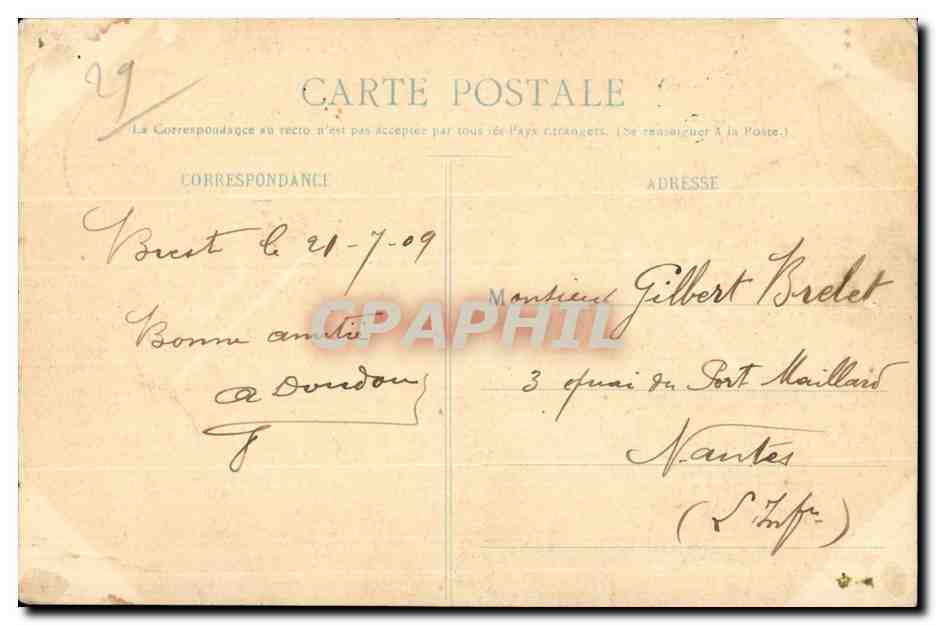 29
CARTE POSTALE
La Correspondance au recto n'est pas acceptée par tous les Pays étrangers. (Se renseigner à la Poste.)
CORRESPONDANCE
Brest le 21-7-09
Bonne amitié
A Doudou
ADRESSE
Monsieur Gilbert Brelet
3 quai du Port Maillard
Nantes
(L. Infre)
CPAPHIL